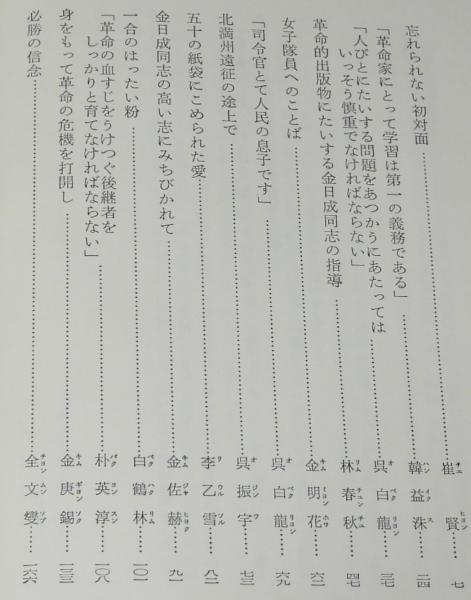 忘れられない初対面……崔賢 七
「革命家にとって学習は第一の義務である」……韓益洙 二四
「人びとにたいする問題をあつかうにあたっては
いっそう慎重でなければならない」……呉白龍 三七
革命的出版物にたいする金日成同志の指導……林春秋 四七
女子隊員へのことば……金明花 六二
「司令官とて人民の息子です」……呉白龍 六九
北満州遠征の途上で……呉振宇 七三
五十の紙袋にこめられた愛……李乙雪 八二
金日成同志の高い志にみちびかれて……金佐赫 九一
一合のはったい粉……白鶴林 一〇一
「革命の血すじをうけつぐ後継者を
しっかりと育てなければならない」……朴英淳 一〇八
身をもって革命の危機を打開し……金庚錫 一三三
必勝の信念……全文燮 一六六